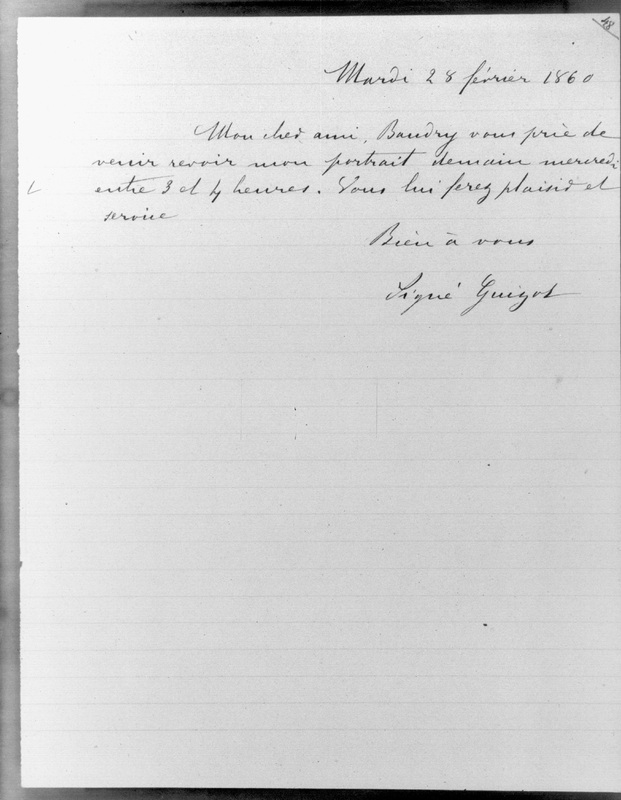 48
Mardi 28 février 1860
Mon cher ami, Baudry vous prie de
venir revoir mon portrait demain mercredi
entre 3 et 4 heures. Vous lui ferez plaisir et
service
Bien à vous
Signé Guizot